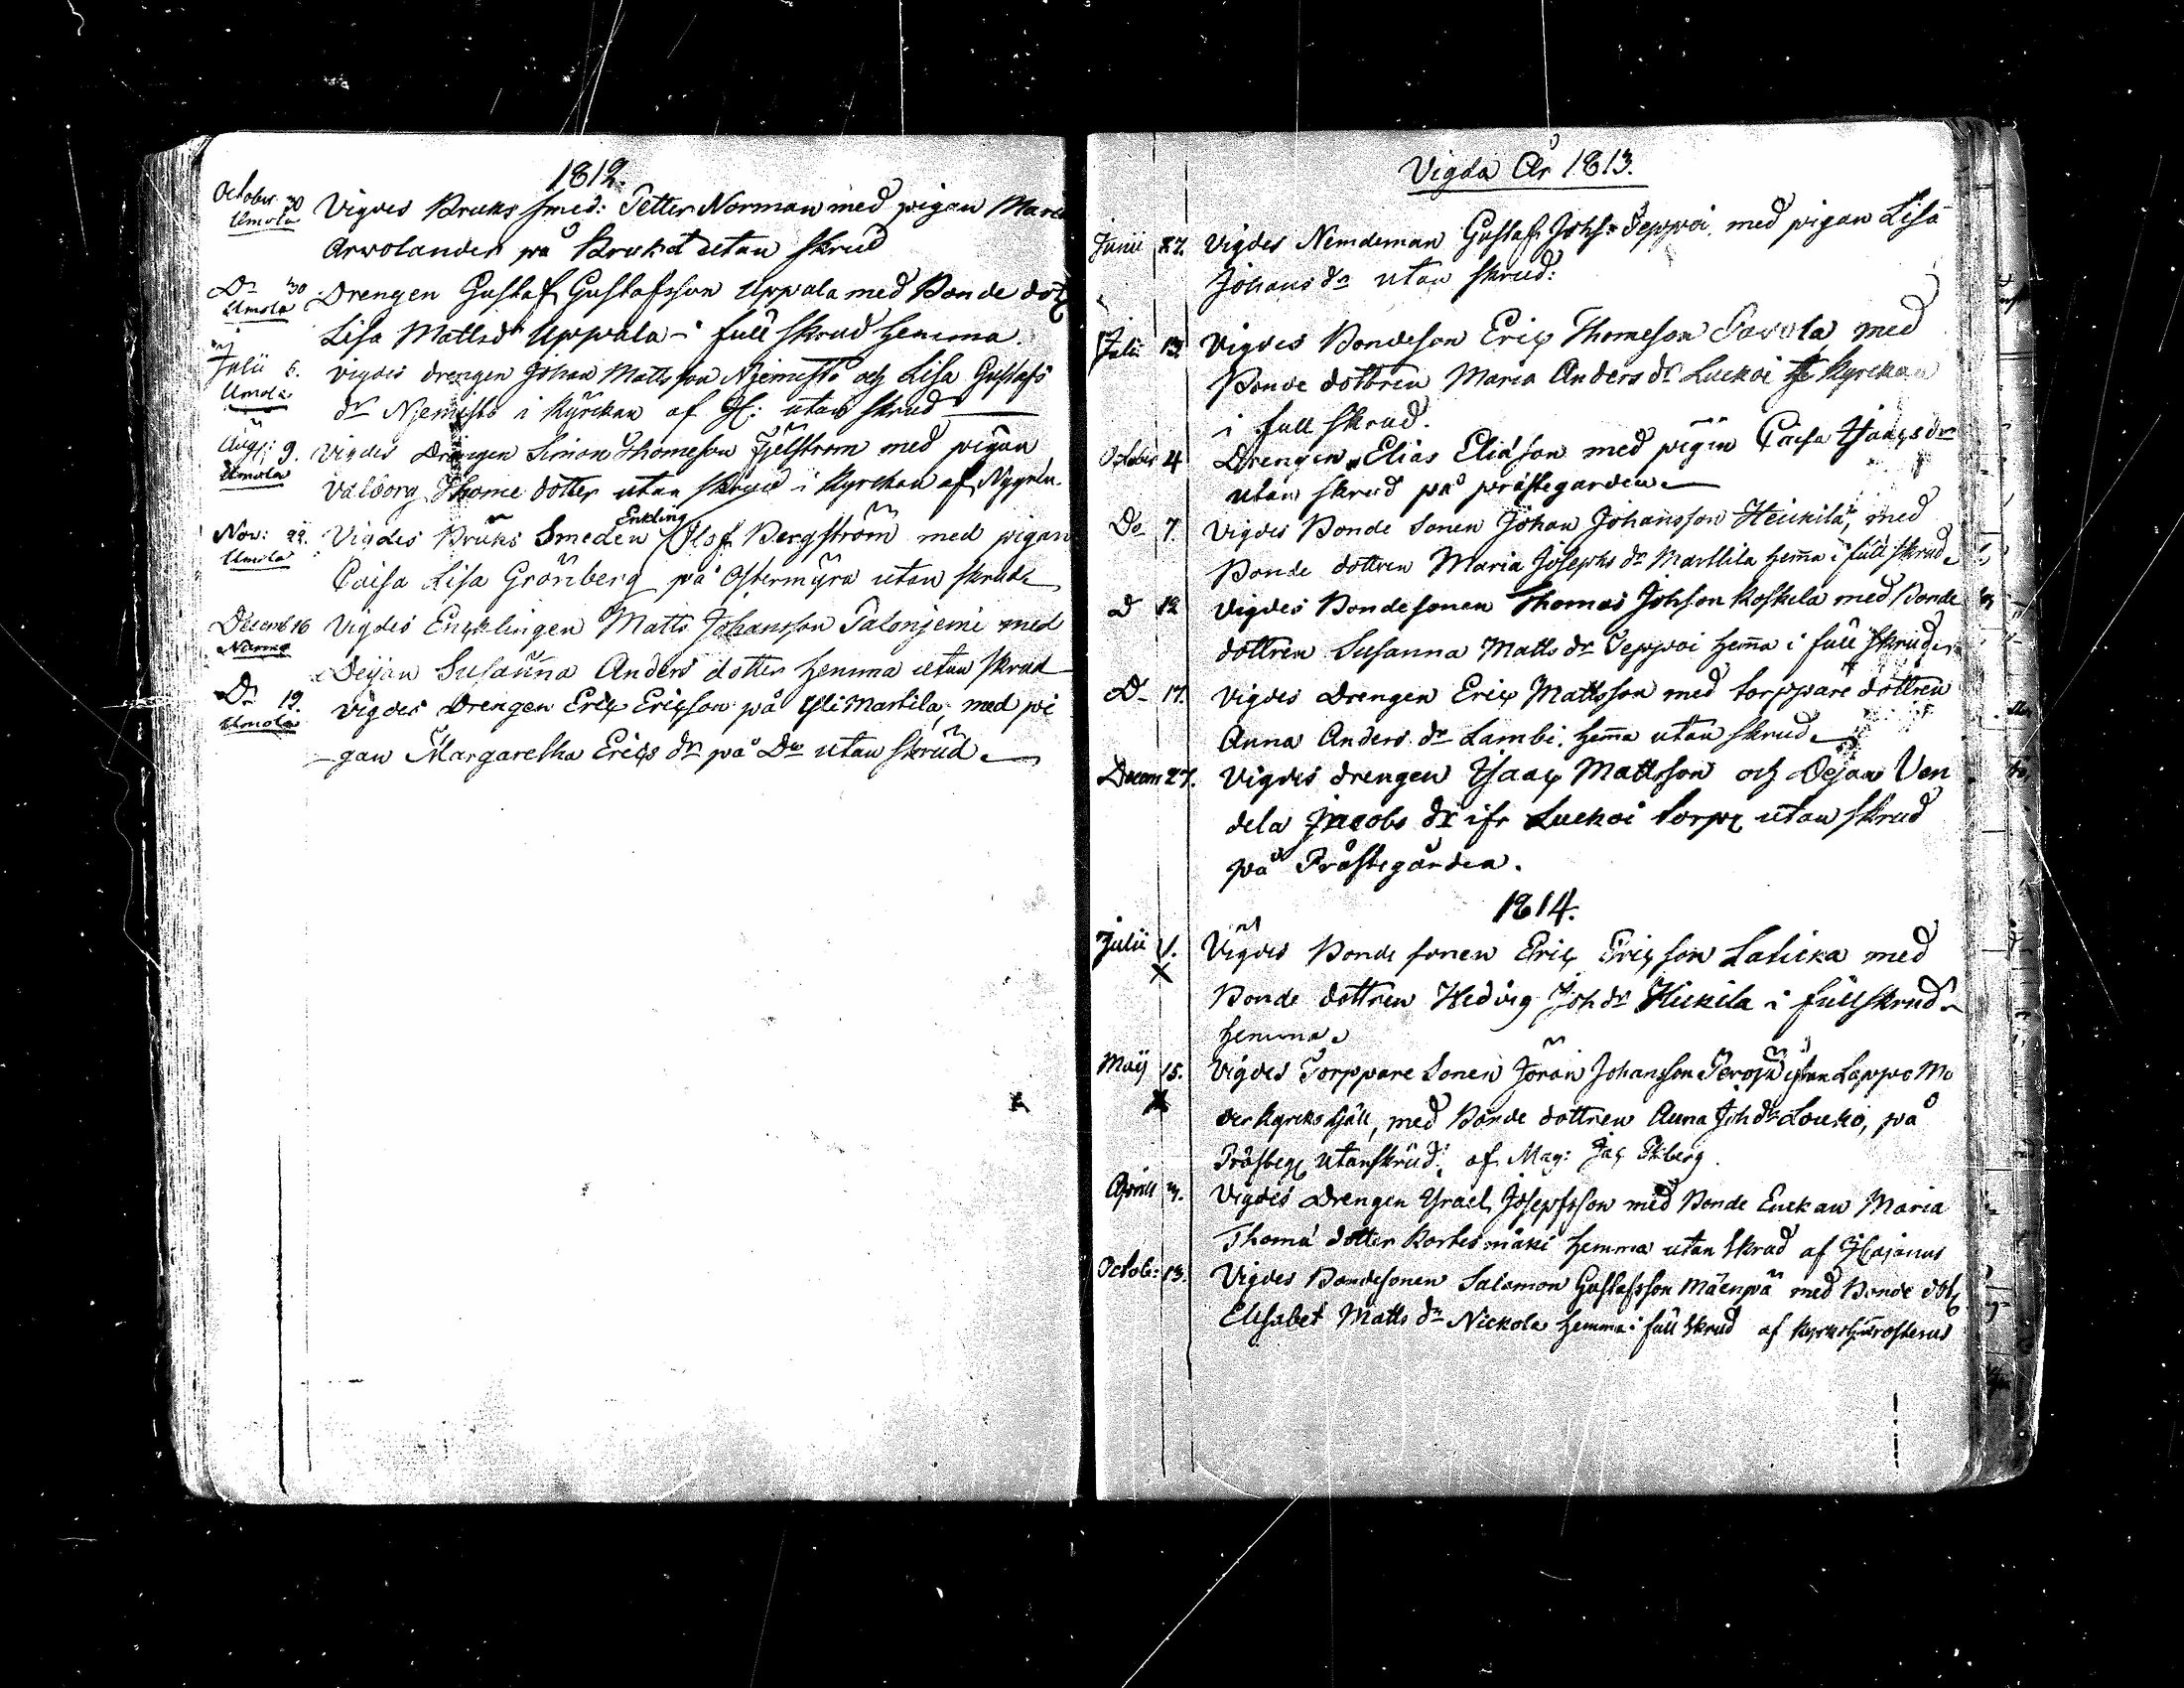 1812.
October 30 Vigdes Bruks smed: Petter Norman med pigan Maria
Umola Arvolander på Bruket utan skrud
Do 30 Drengen Gustaf Gustafsson Uppala med Bonde dot
Umola Lisa Mattsdr Uppala i full skrud hemma.
Julii 5. vigdes drengen Johan Mattsson Njemistö och Lisa Gustafs
Umola dr Njemistö i Kyrckan af H: utan skrud
Aug: 9. vigdes Drängen Simon Thomeson Fjelström med pigan
Umola Valborg Thome dotter utan skrud i Kyrckan af Nygren.
Enkling
Nov: 22. Vigdes Bruks Smeden Olof Bergström med pigan
Umola Caisa Lisa Grönberg på Östermyra utan skrud
Decemb 16 Vigdes Encklingen Matts Johansson Talonjemi med
Nurmo Deijan Susanna Anders dotter hemma utan skrud
Do 19. vigdes Drengen Eric Ericson på Yli Martila, med pi
Umola gan Margaretha Erics dr på Do utan skrud
Vigda År 1813.
Junii 27. Vigdes Nemdeman Gustaf Johs: Seppoi med pigan Lisa
Johans dr utan skrud:
Julii 13. Vigdes Bondeson Eric Thomeson Pavola med
Bonde dottren Maria Anders dr Luckoi Kyrckan
i full skrud.
October 4 Drengen Elias Eliason med pigin Caisa Isaacs dr
utan skrud på prästegarden
Do 7. Vigdes Bonde Sonen Johan Johansson Heickilä, med
Bonde dottren Maria Josephs dr Marttila hema i full skrud
D 12 Vigdes Bondesonen Thomas Johson Koskela med Bonde
dottren Susanna Matts dr Seppoi hema i full skrud
D 17. Vigdes Drengen Eric Mattsson med torppare dottren
Anna Anders dr Lambi hema utan skrud
Decem 27. Vigdes drengen Isaac Mattsson och Dejan Ven
dela Jacobs dr ifr Luckoi torp utan skrud
på Prästegården.
1814.
Julii 1. Vigdes Bonde sonen Eric Ericson Laticka med
X Bonde dottren Hedvig Joh dr Hickila i full skrud
hemma.
Maij 15. Vigdes Torppare Sonen Jöran Johansson från Lappo Mo
X der Kyrcks gäll, med Bonde dottren Anna Joh dr Louko, på
Prästeg utan skrud, af Mag: Jac Ekberg.
Aprill 3. Vigdes Drengen Israel Josephsson med Bonde Enckan Maria
Thoma dotter Kortesmäki hemma utan skrud af Cajanus
Octob: 13. Vigdes Bondesonen Salamon Gustafsson Mäenpä med Bonde dot
Elisabet Matts dr Nickola hemma i full skrud af